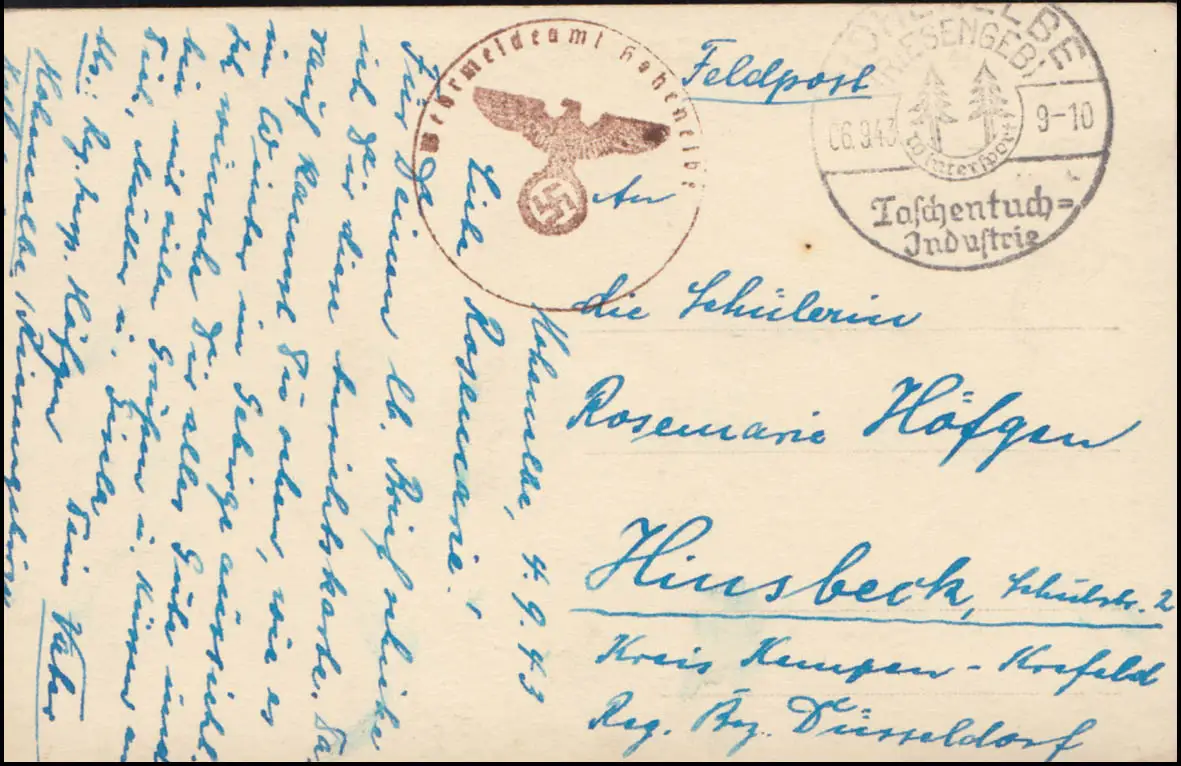 Feldpost
Wehrmeldeamt Hohenelbe
HOHENELBE
(RIESENGEB)
06.9.43
9-10
Wintersport
Taschentuch=
Industrie
An
die Schülerin
Rosemarie Höfgen
Hinsbeck, Schulstr. 2
Kreis Kempen - Krefeld
Reg. Bez. Düsseldorf
Hohenelbe, 4.9.43
Liebe Rosemarie!
Für Deinen lb. Brief schicke
ich Dir diese Ansichtskarte. Da-
rauf kannst Du sehen, wie es
im Winter im Gebirge aussieht.
Ich wünsche Dir alles Gute und
bin mit vielen Grüßen u. Küssen an
Dich, Mutter u.
Dein Vater
Höfgen
Hohenelbe